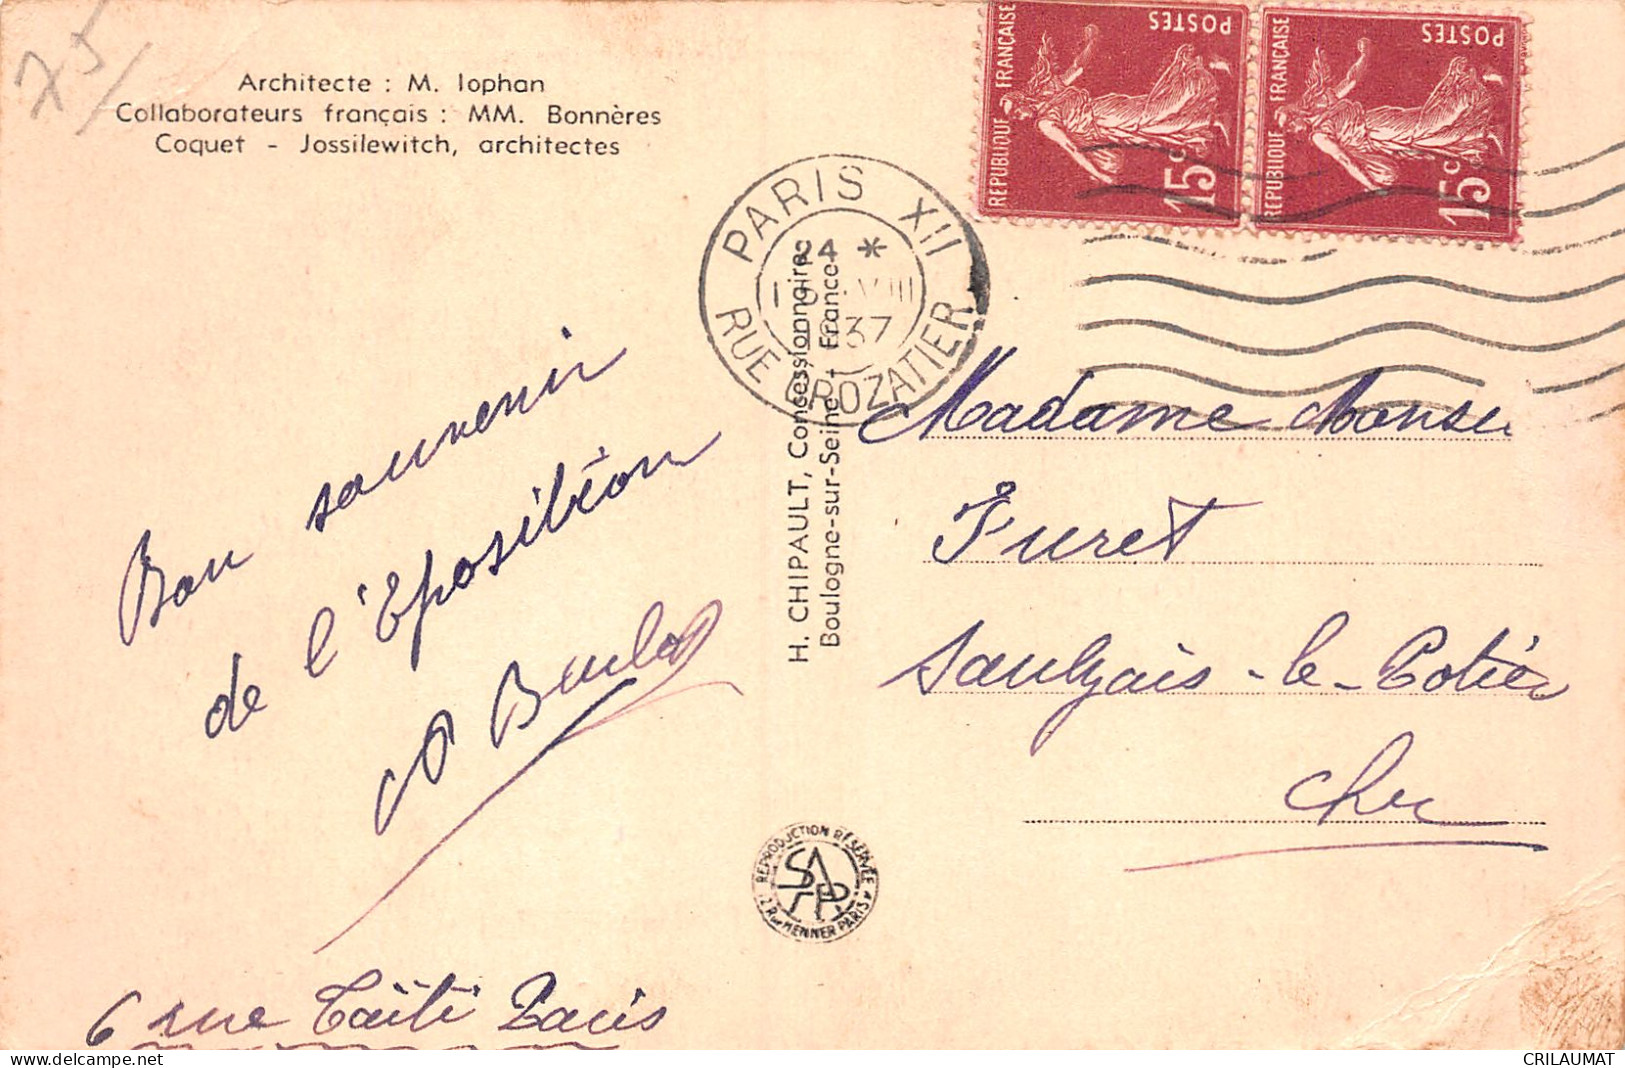 75/
Architecte : M. Iophan
Collaborateurs français : MM. Bonnères
Coquet - Jossilewitch, architectes
POSTES
REPUBLIQUE FRANÇAISE
15c
POSTES
REPUBLIQUE FRANÇAISE
15c
PARIS XII
24 *
VIII
1937
RUE CROZATIER
Bon souvenir
de l'Eposition
H. CHIPAULT, Concessionnaire
Boulogne-sur-Seine - France
Madame
Furet
Saulzais-le-Potier
Cher
REPRODUCTION RÉSERVÉE
SAPR
2 Rue MENNER PARIS
6 rue Taïti Paris
CRILAUMAT
delcampe.net